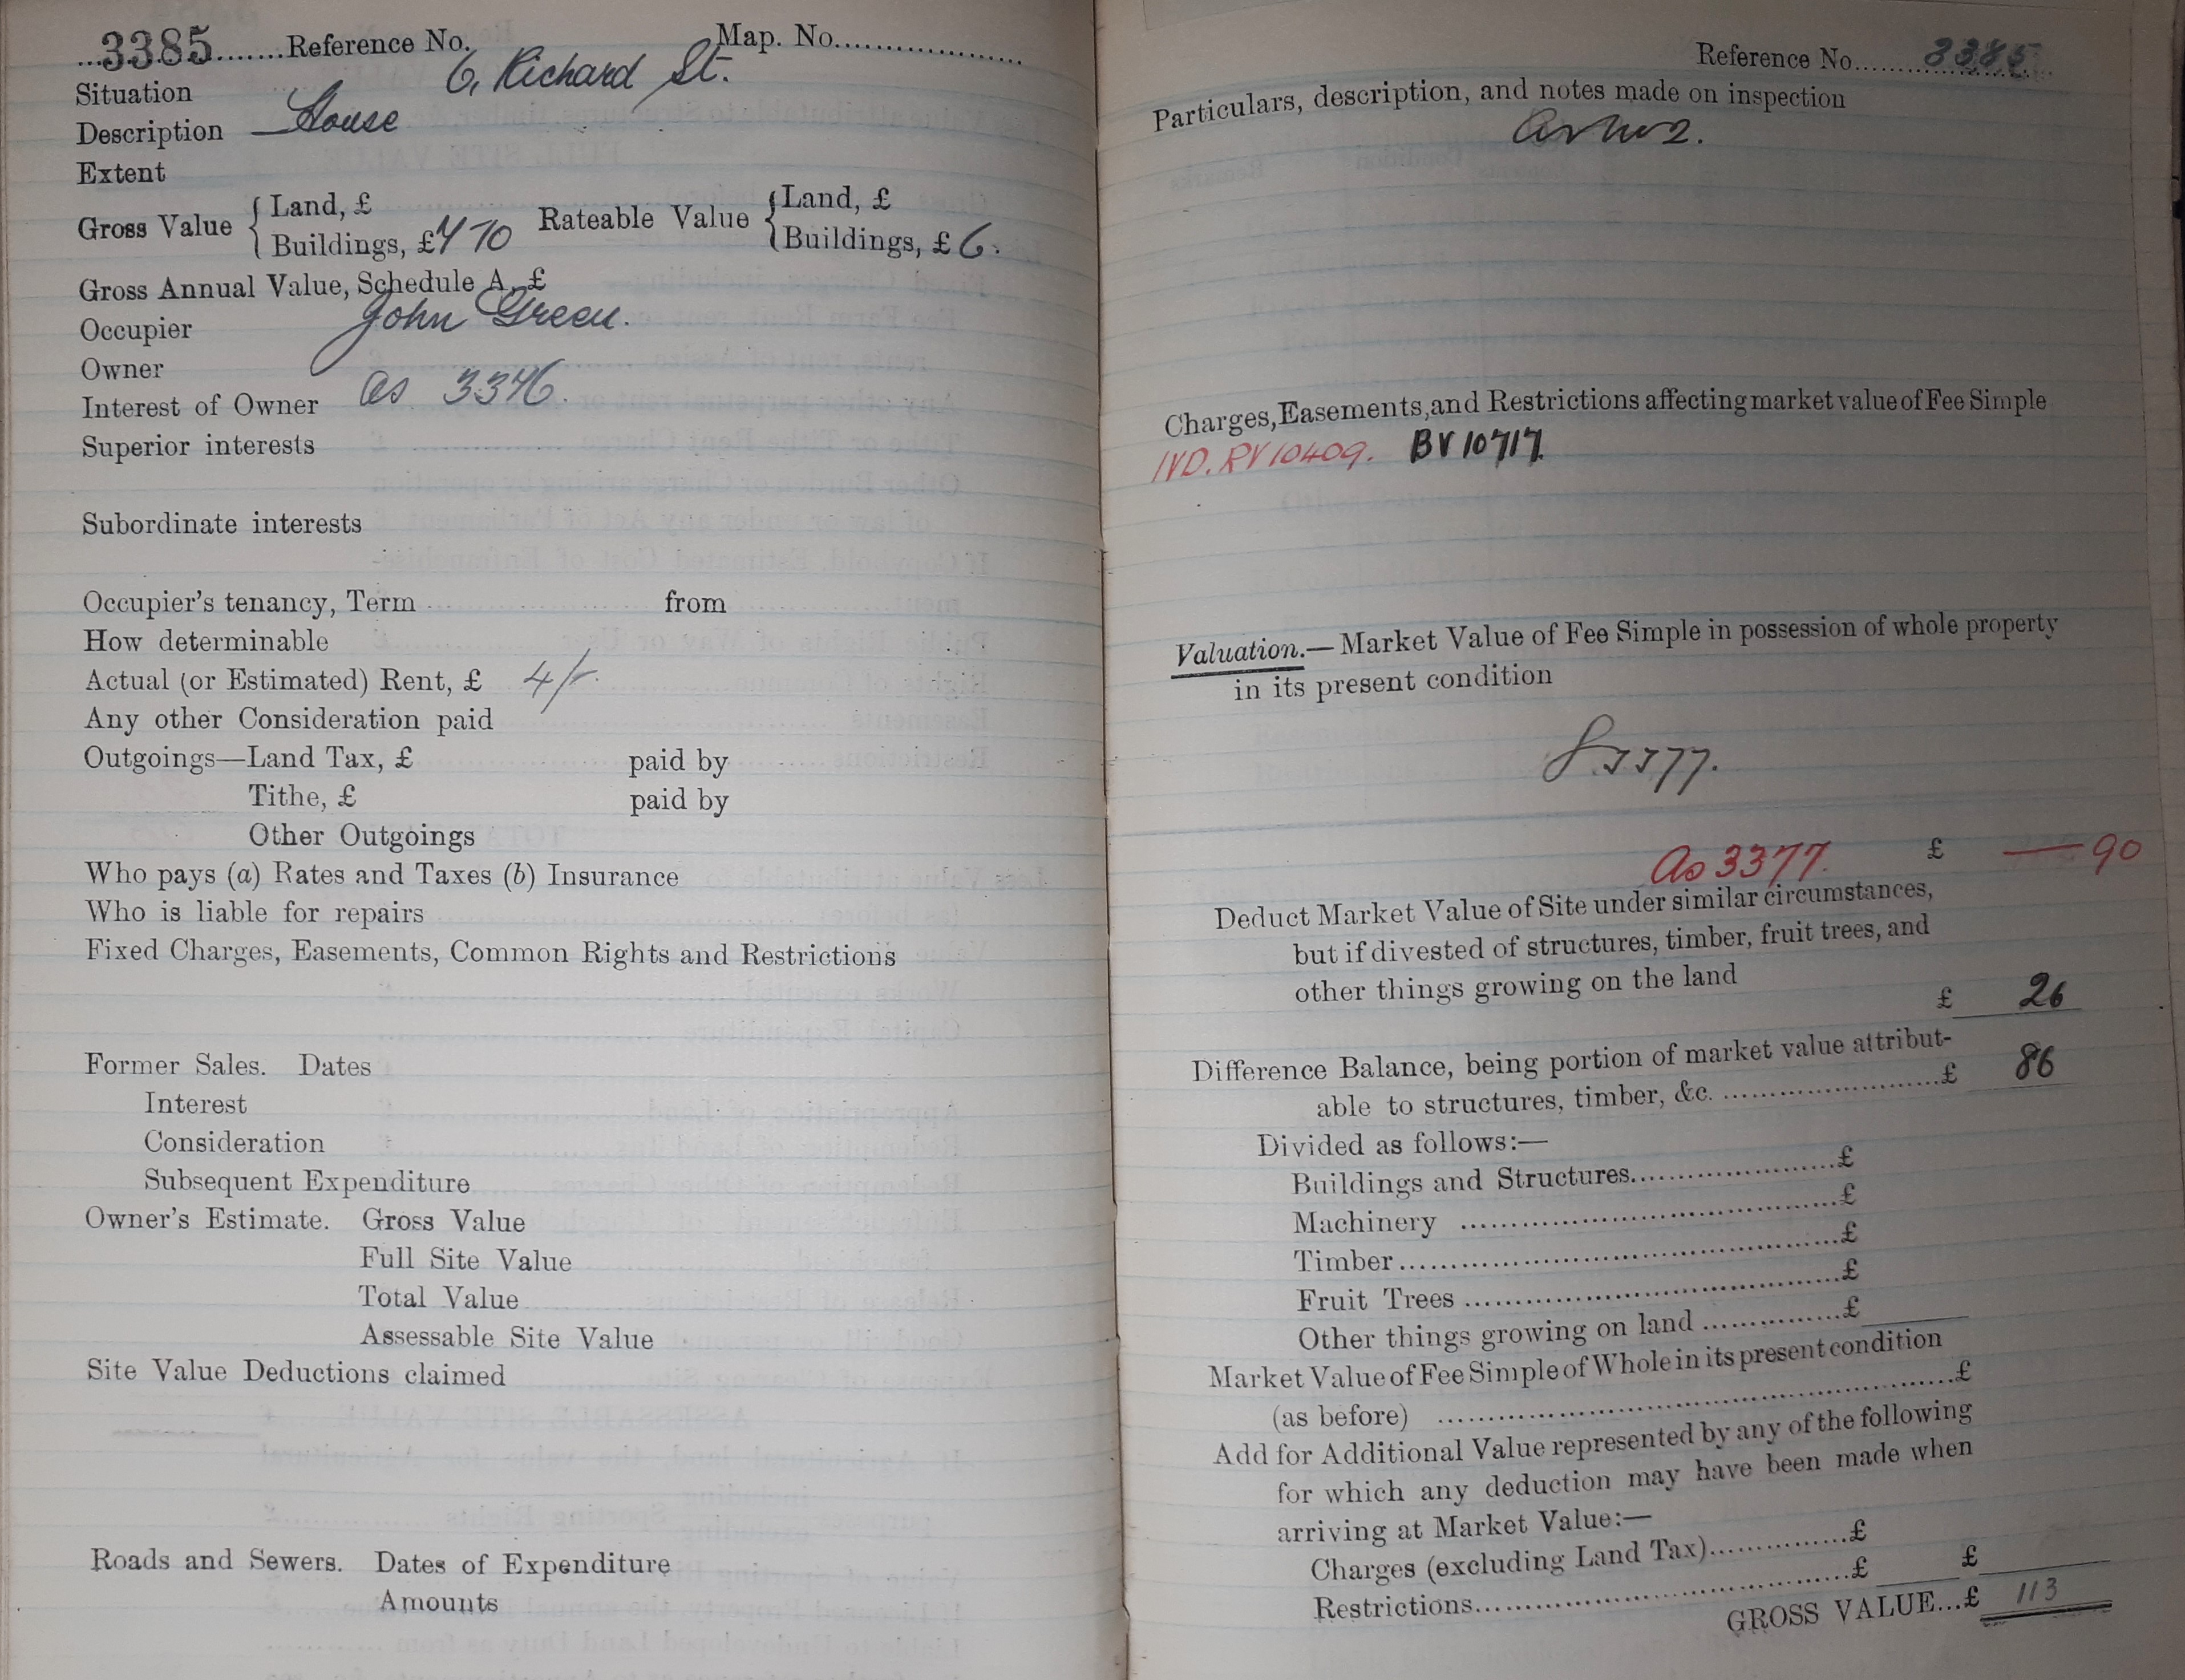 3385 Reference No. Map. No.
Situation 6, Richard St.
Description House
Extent
Gross Value { Land, £ Rateable Value { Land, £
Buildings, £ 7 10 Buildings, £ 6.
Gross Annual Value, Schedule A, £
Occupier John Green.
Owner
Interest of Owner as 3346.
Superior interests
Subordinate interests
Occupier's tenancy, Term from
How determinable
Actual (or Estimated) Rent, £ 4/-
Any other Consideration paid
Outgoings—Land Tax, £ paid by
Tithe, £ paid by
Other Outgoings
Who pays (a) Rates and Taxes (b) Insurance
Who is liable for repairs
Fixed Charges, Easements, Common Rights and Restrictions
Former Sales. Dates
Interest
Consideration
Subsequent Expenditure
Owner's Estimate. Gross Value
Full Site Value
Total Value
Assessable Site Value
Site Value Deductions claimed
Roads and Sewers. Dates of Expenditure
Amounts
Reference No. 3385
Particulars, description, and notes made on inspection
Charges, Easements, and Restrictions affecting market value of Fee Simple
IVD. RV 10409. BV 10717
Valuation.—Market Value of Fee Simple in possession of whole property
in its present condition
3377.
As 3377. £ — 90
Deduct Market Value of Site under similar circumstances,
but if divested of structures, timber, fruit trees, and
other things growing on the land
£ 26
Difference Balance, being portion of market value attribut-
able to structures, timber, &c. £ 86
Divided as follows:—
Buildings and Structures £
Machinery £
Timber £
Fruit Trees £
Other things growing on land £
Market Value of Fee Simple of Whole in its present condition
(as before) £
Add for Additional Value represented by any of the following
for which any deduction may have been made when
arriving at Market Value:—
Charges (excluding Land Tax) £
Restrictions £ £
GROSS VALUE...£ 113